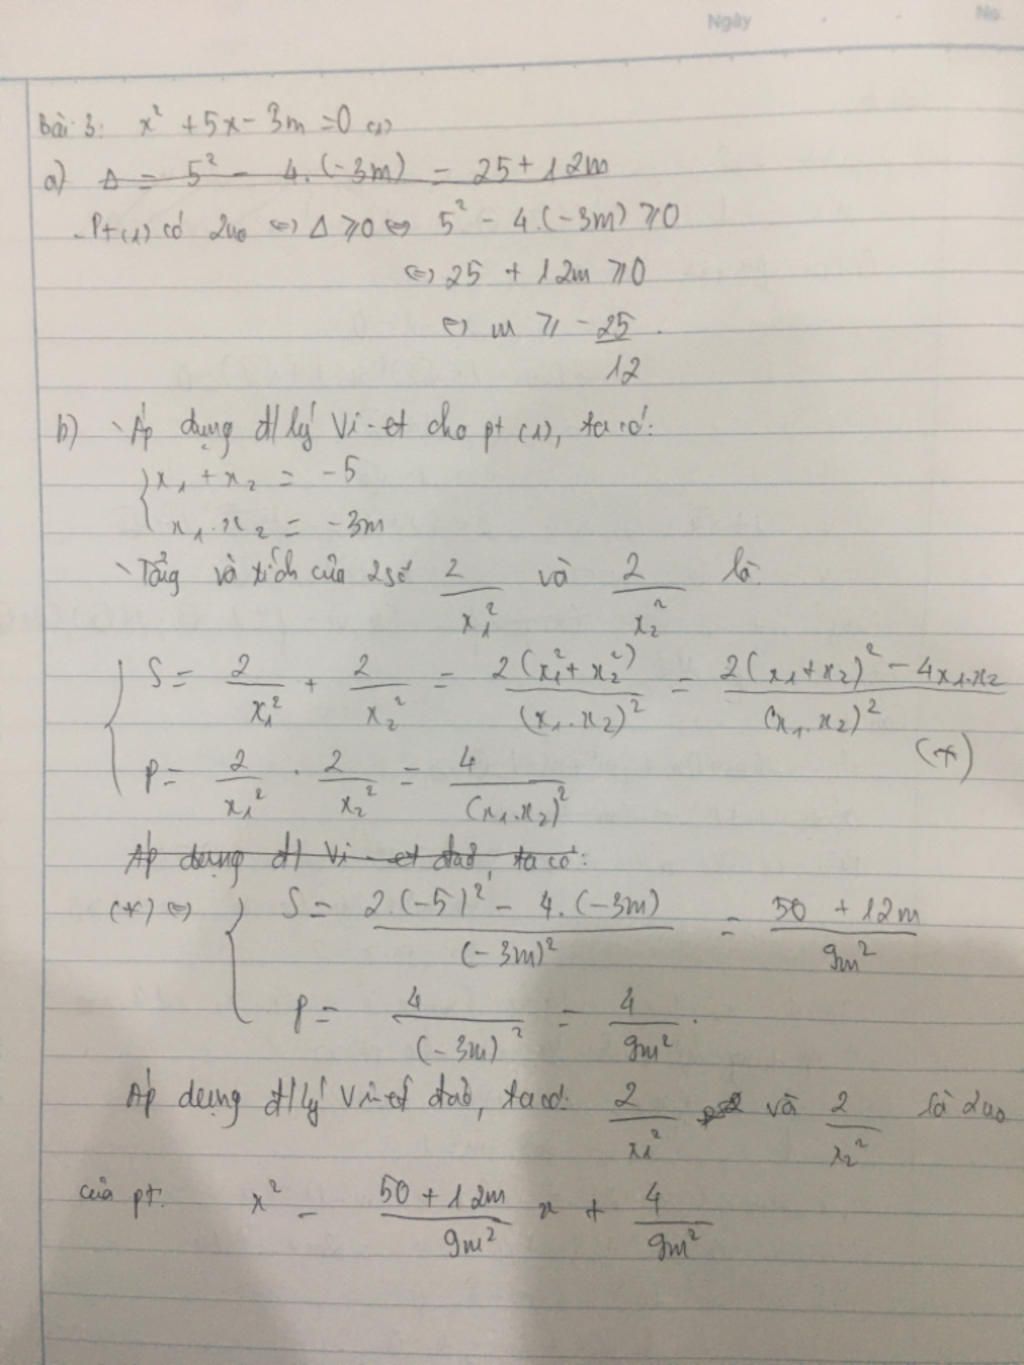 Ngày No.
Bài 3: x² + 5x - 3m = 0 (1)
a) Δ = 5² - 4.(-3m) = 25 + 12m
- Pt (1) có 2no ⇔ Δ ⩾ 0 ⇔ 5² - 4.(-3m) ⩾ 0
⇔ 25 + 12m ⩾ 0
⇔ m ⩾ - 25/12.
b) Áp dụng đ/lý Vi-et cho pt (1), ta có:
{ x₁ + x₂ = -5
x₁.x₂ = -3m
Tổng và tích của 2 số 2/x₁² và 2/x₂² là
{ S = 2/x₁² + 2/x₂² = 2(x₁² + x₂²)/(x₁.x₂)² = 2(x₁ + x₂)² - 4x₁.x₂/(x₁.x₂)²
(*)
P = 2/x₁² . 2/x₂² = 4/(x₁.x₂)²
Áp dụng đl Vi-et đảo, ta có:
(*) ⇔ { S = 2.(-5)² - 4.(-3m)/(-3m)² = 50 + 12m/9m²
P = 4/(-3m)² = 4/9m².
Áp dụng đ/lý Vi-et đảo, ta có: 2/x₁² và 2/x₂² là 2no
của pt: x² - 50 + 12m/9m² x + 4/9m²